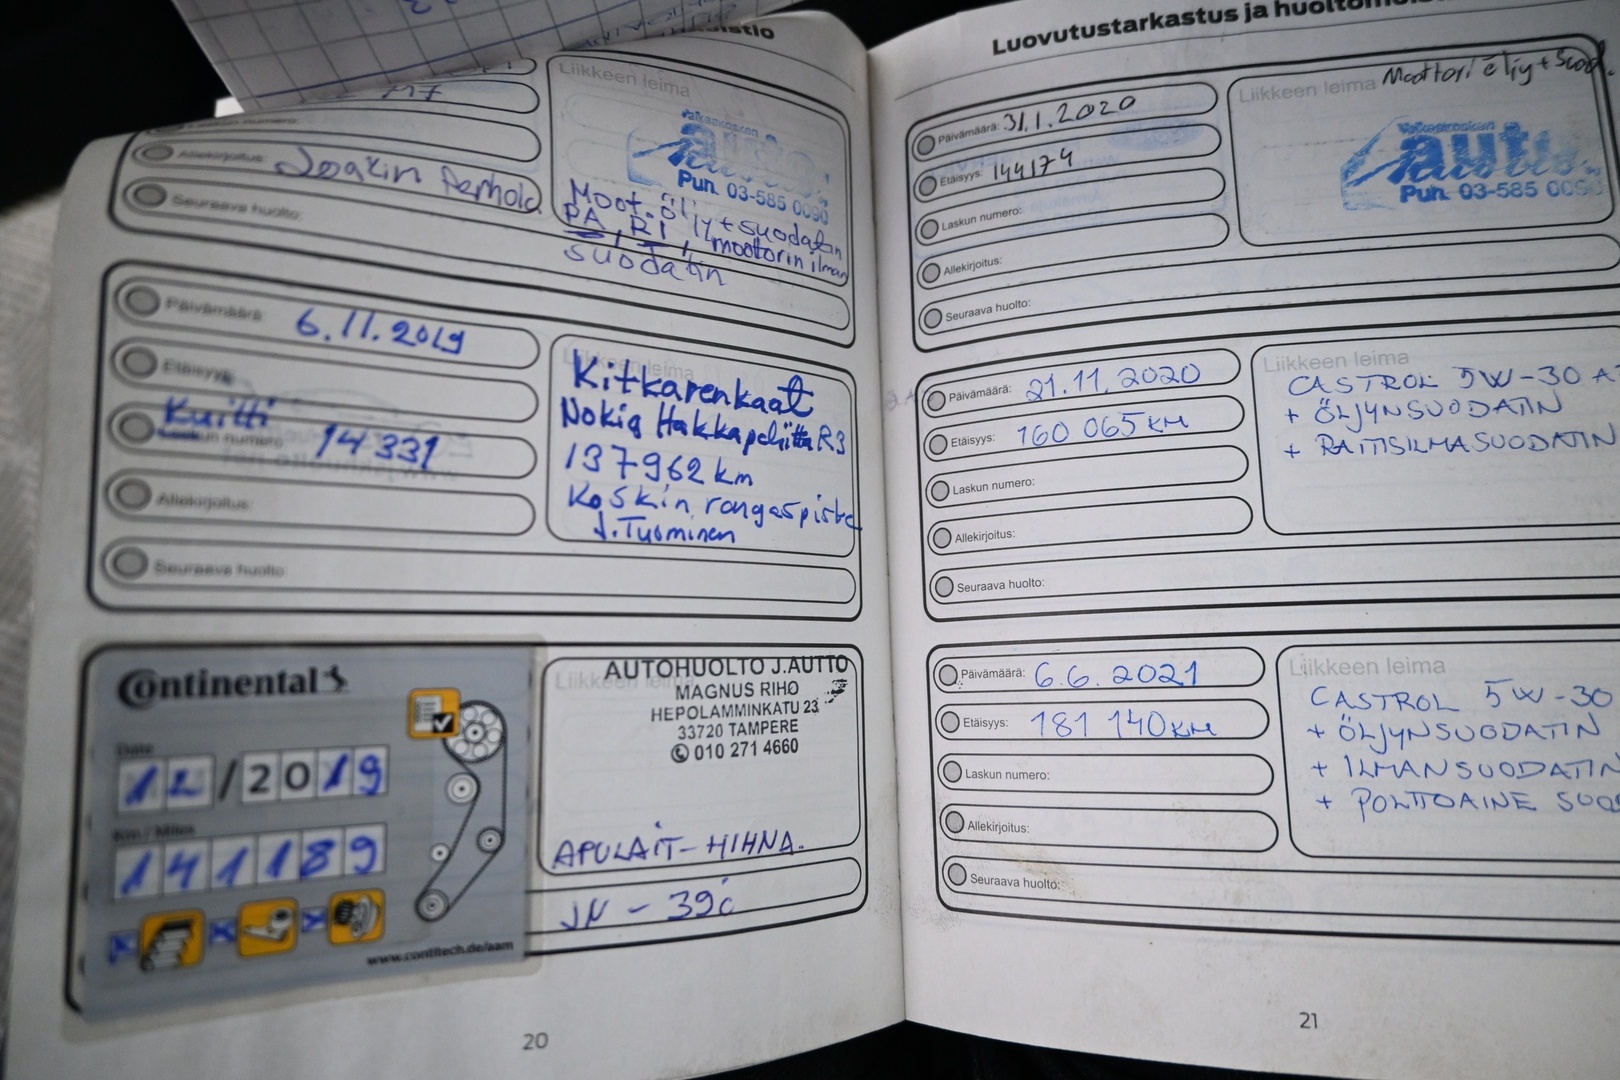 Allekirjoitus: Joakin
Seuraava huolto:
Liikkeen leima
Valkeakosken
auto
Puh. 03-585 0090
Moot. öljy + suodatin
PA, RI, moottorin ilman
suodatin
Päivämäärä: 6.11.2019
Etäisyys:
Kuitti
Laskun numero: 14331
Allekirjoitus:
Seuraava huolto:
Liikkeen leima
Kitkarenkaat
Nokia Hakkapeliitta R3
137962 km
Koskin rengaspiste
J. Tuominen
Continental
Date
12/2019
Km / Miles
141189
www.contitech.de/aam
Liikkeen leima
AUTOHUOLTO J.AUTTO
MAGNUS RIHO
HEPOLAMMINKATU 23
33720 TAMPERE
010 271 4660
APULAIT-HIHNA.
20
Luovutustarkastus ja
Päivämäärä: 31.1.2020
Etäisyys: 144174
Laskun numero:
Allekirjoitus:
Seuraava huolto:
Liikkeen leima Moottori öljy + Suod.
Valkeakosken
auto
Puh. 03-585 0090
Päivämäärä: 21.11.2020
Etäisyys: 160 065 KM
Laskun numero:
Allekirjoitus:
Seuraava huolto:
Liikkeen leima
CASTROL 5W-30
+ ÖLJYNSUODATIN
+ RAITISILMASUODATIN
Päivämäärä: 6.6.2021
Etäisyys: 181 140 KM
Laskun numero:
Allekirjoitus:
Seuraava huolto:
Liikkeen leima
CASTROL 5W-30
+ ÖLJYNSUODATIN
+ ILMANSUODATIN
+ POLTTOAINE
21